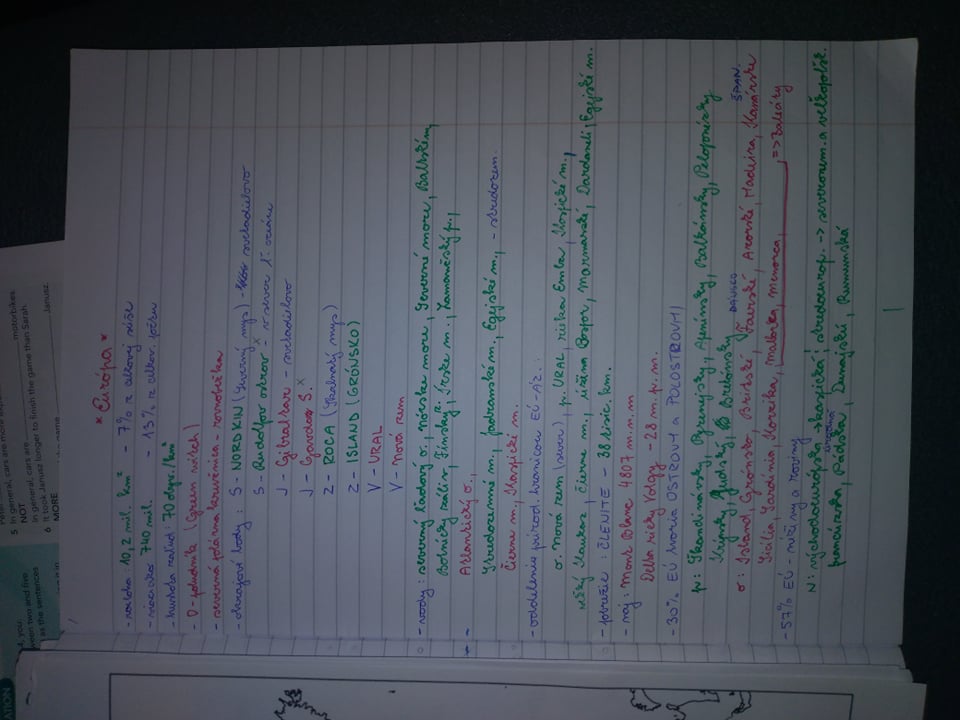 ATION
4, you:
ween two and five
as the sentences
5 In general, cars are more
NOT
In general, cars are motorbikes.
6 It took Janusz longer to finish the game than Sarah.
MORE
the game Janusz.
* Európa *
- rozloha : 10,2 mil. km² - 7% z celkovej súše
740 mil. - 13% z celkov. počtu
- hustota zaľud : 70 obyv./km²
- 0-poludník (Green witch)
- severná polárna kružnica - rovnobežka
- okrajové body : S - NORDKIN (Severný mys) - svetadielovo
S - Rudolfov ostrov - v sever. ľ. oceáne
J - Gibraltar - svetadielovo
J - Gavdos S. x
Z - ROCA (Skalnatý mys)
Z - ISLAND (GRÓNSKO)
V - URAL
V - Nová zem
- vody : severný ľadový o., Nórske more, Severné more, Baltské m,
Botnický záliv, Fínsky z, Írske m., Lamanšský p.,
Atlantický o.,
Stredozemné m., Jadranské m., Egejské m., - stredozem.
Čierne m., Kaspické m.
- oddelenie prírod. hranicou EÚ-ÁZ. :
o. Nová zem (sever), p. URAL, rieka Emba, Kaspické m.,
Kaukaz, čierne m., úžina Bospor, Marmarské, Dardanely, Egejské m.
- pobrežie : ČLENITÉ - 38 tisíc. km.
- naj : Mont Blanc 4807 m.n.m
Delta rieky Volgy - 28 m.p.m.
- 30% EÚ tvoria OSTROVY a POLOSTROVY
p: Škandinávsky, Pyrenejský, Apeninský, Balkánsky, Peloponézky
Krýmsky, Judský, Bretónsky
DÁNSKO ŠPAN.
o: Island, Grónsko, Britské, Faerské, Azorské, Madeira, Kanárske
Sicília, Sardínia, Korzika, Mallorka, Menorca, => Baleáry
- 57% EÚ - nížiny a roviny
N: východoeurópska -> kaspická ; stredoeurop. -> severonem. a veľkopoľsk.
úrodná
francúzska, Pádska, Dunajské, Rumunská